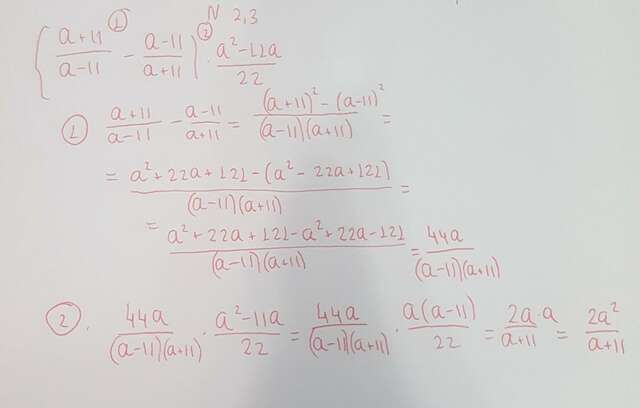 N 2,3
( (a+11)/(a-11) ① - (a-11)/(a+11) ) ② · (a²-11a)/22
① (a+11)/(a-11) - (a-11)/(a+11) = ((a+11)² - (a-11)²)/((a-11)(a+11)) =
= (a²+22a+121-(a²-22a+121))/((a-11)(a+11)) =
= (a²+22a+121-a²+22a-121)/((a-11)(a+11)) = 44a/((a-11)(a+11))
②. 44a/((a-11)(a+11)) · (a²-11a)/22 = 44a/((a-11)(a+11)) · a(a-11)/22 = 2a·a/(a+11) = 2a²/(a+11)